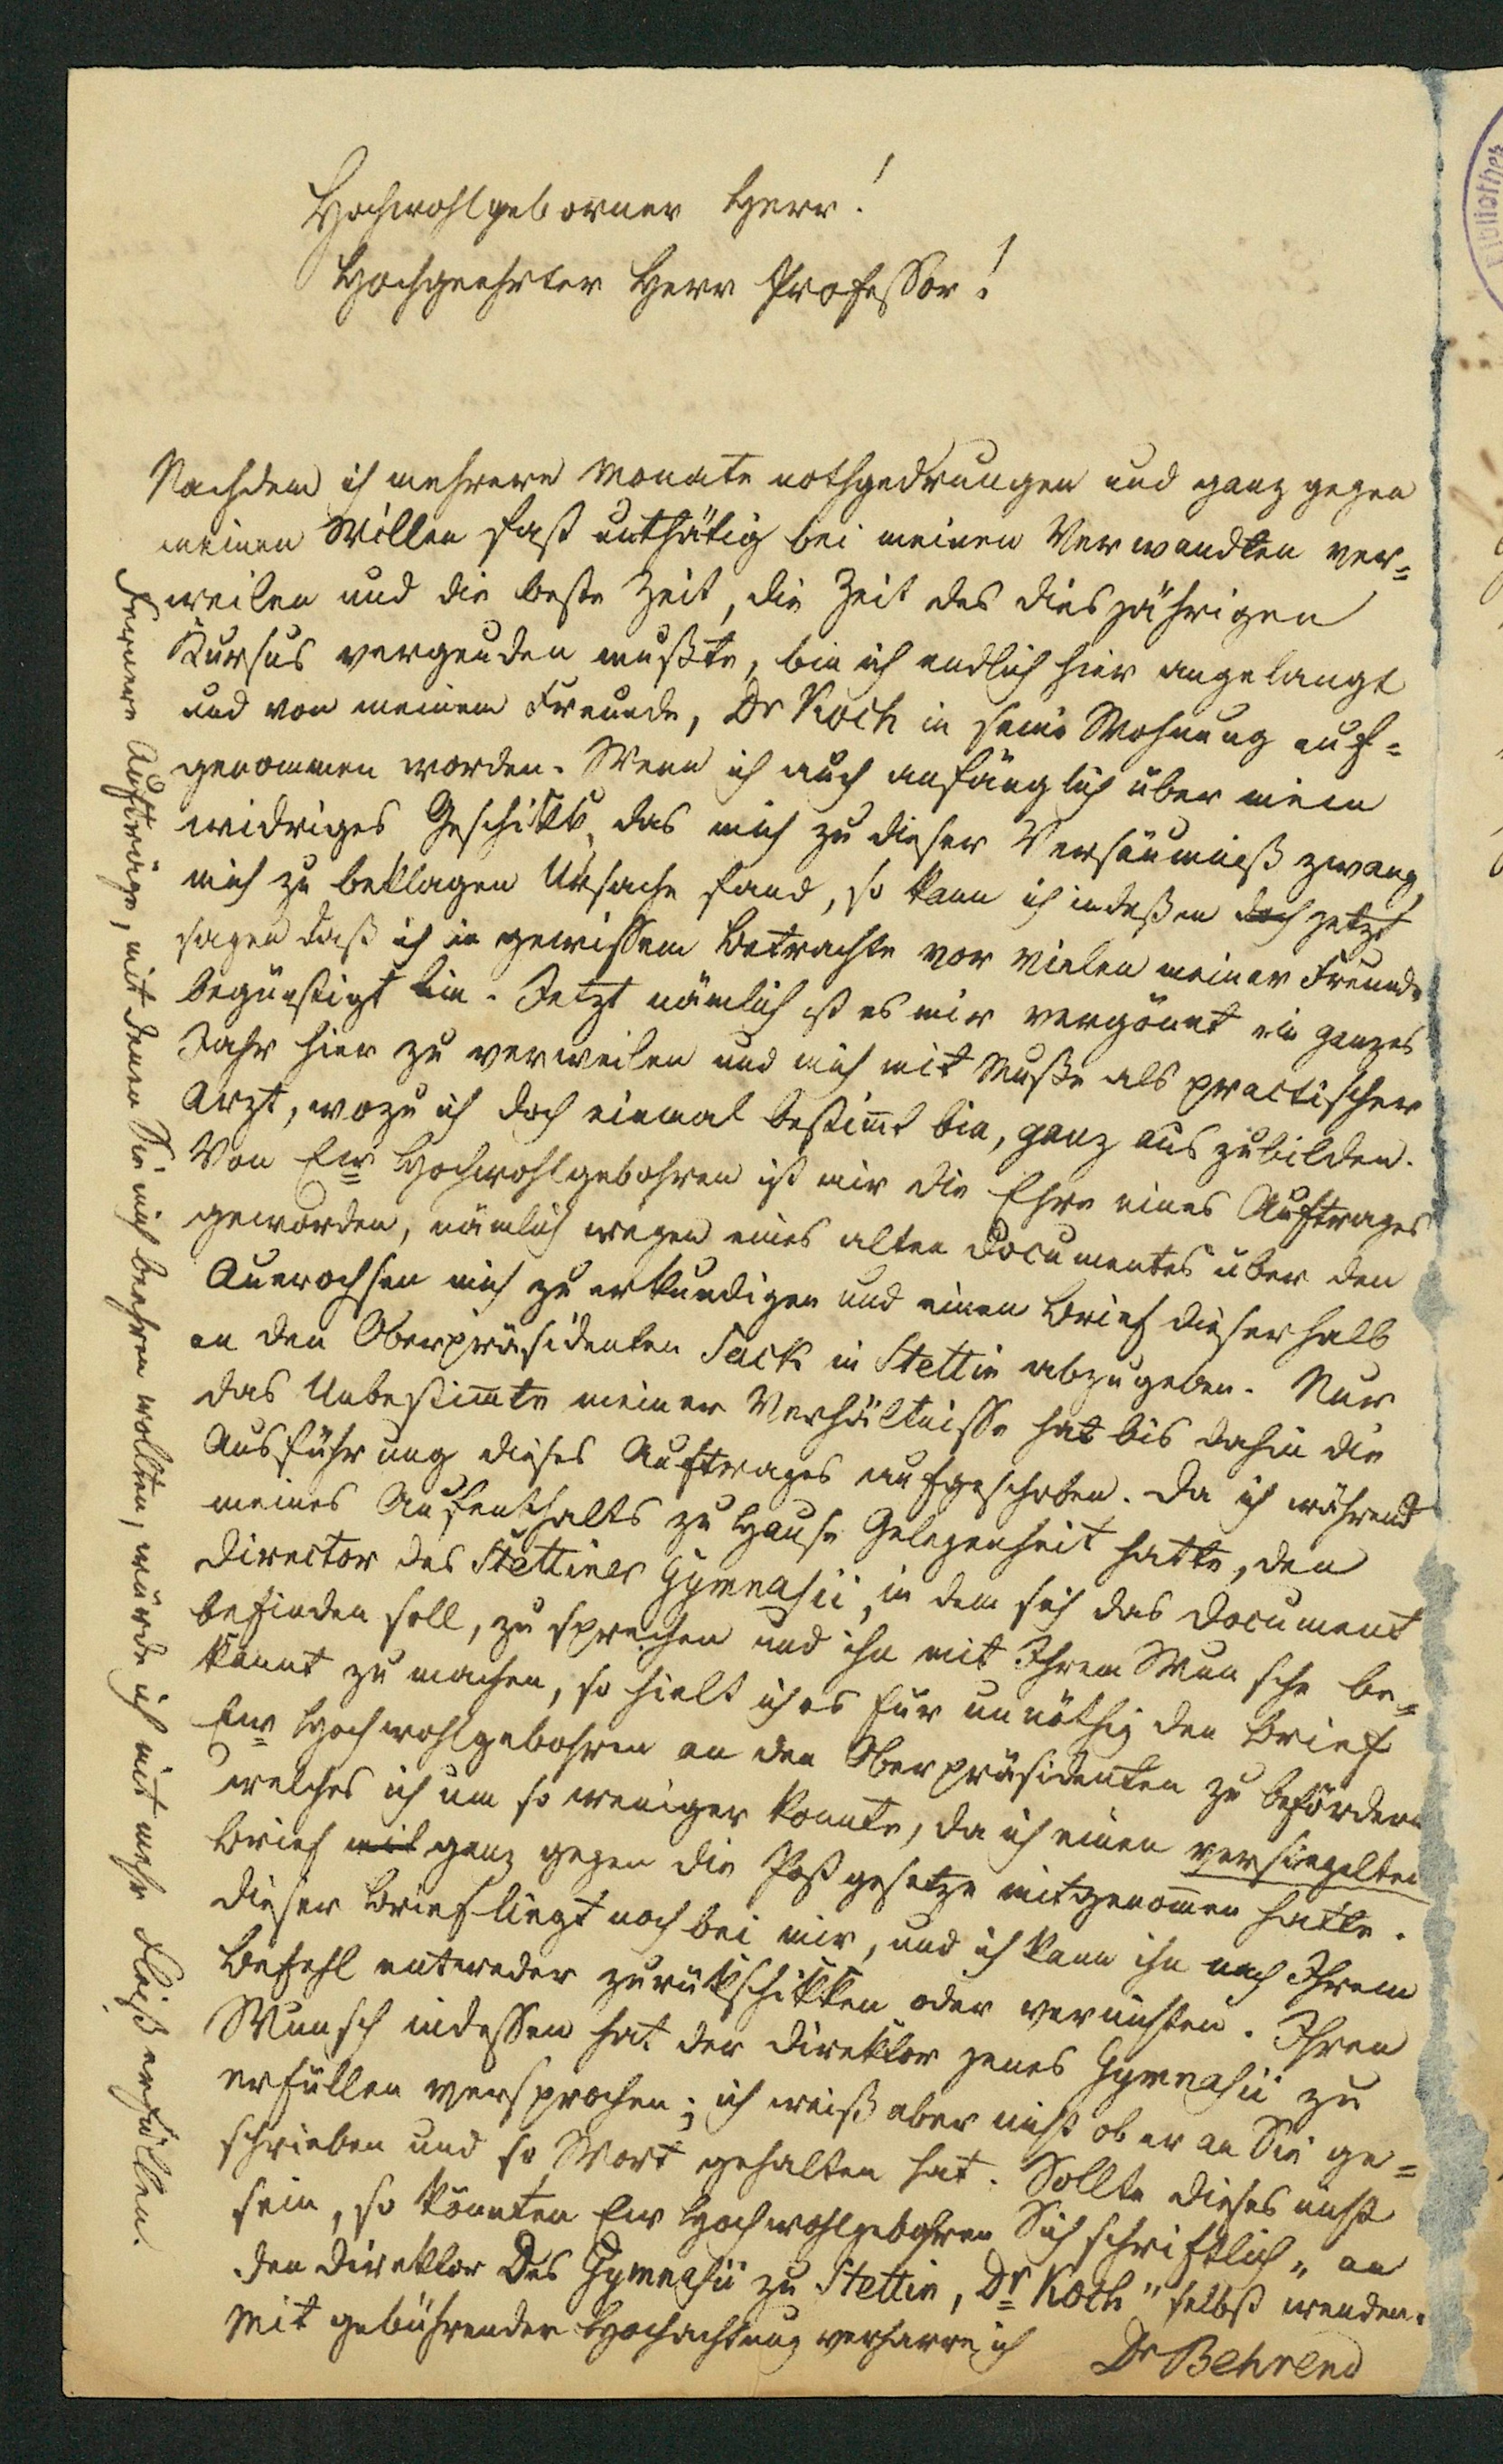 Hochwohlgeborner Herr!
Hochgeehrter Herr Professor!
Nachdem ich mehrere Monate nothgedrungen und ganz gegen
meinen Willen fast unthätig bei meinen Verwandten ver=
weilen und die beste Zeit, die Zeit des diesjährigen
Kursus vergeuden mußte, bin ich endlich hier angelangt
und von meinem Freunde, Dr Koch in seine Wohnung auf=
genommen worden. Wenn ich auch anfänglich über mein
widriges Geschikk, das mich zu dieser Versäumniß zwang,
mich zu beklagen Ursache fand, so kann ich indeßen doch jetzt
sagen daß ich in gewissem Betrachte vor vielen meiner Freunde
begünstigt bin. Jetzt nämlich ist es mir vergönnt ein ganzes
Jahr hier zu verweilen und mich mit Muße als practischer
Arzt, wozu ich doch einmal bestimt bin, ganz auszubilden.
Von Ew Hochwohlgebohren ist mir die Ehre eines Auftrages
geworden, nämlich wegen eines alten Documentes über den
Auerochsen mich zu erkundigen und einen Brief dieserhalb
an den Oberpräsidenten Sack in Stettin abzugeben. Nur
das Unbestimte meiner Verhältnisse hat bis dahin die
Ausführung dieses Auftrages aufgeschoben. Da ich während
meines Aufenthalts zu Hause Gelegenheit hatte, den
Director des Stettiner Gymnasii, in dem sich das Document
befinden soll, zu sprechen und ihn mit Ihrem Wunsche be=
kannt zu machen, so hielt ich es für unnöthig den Brief
Ew Hochwohlgebohren an den Oberpräsidenten zu befördern
welches ich um so weniger konnte, da ich einen versiegelten
Brief mit ganz gegen die Postgesetze mitgenomen hatte.
Dieser Brief liegt noch bei mir, und ich kann ihn nach Ihrem
Befehl entweder zurükkschikken oder vernichten. Ihren
Wunsch indessen hat der Direktor jenes Gymnasii zu
erfüllen versprochen; ich weiß aber nicht ob er an Sie ge=
schrieben und so Wort gehalten hat. Sollte dieses nicht
sein, so könnten Ew Hochwohlgebohren Sich schriftlich „an
den Direktor des Gymnasii zu Stettin, Dr Koch" selbst wenden.
Mit gebührender Hochachtung verharre ich
Dr Behrend
Fernere Aufträge, mit denen Sie mich beehren wollten, würde ich mit mehr Fleiß erfüllen.